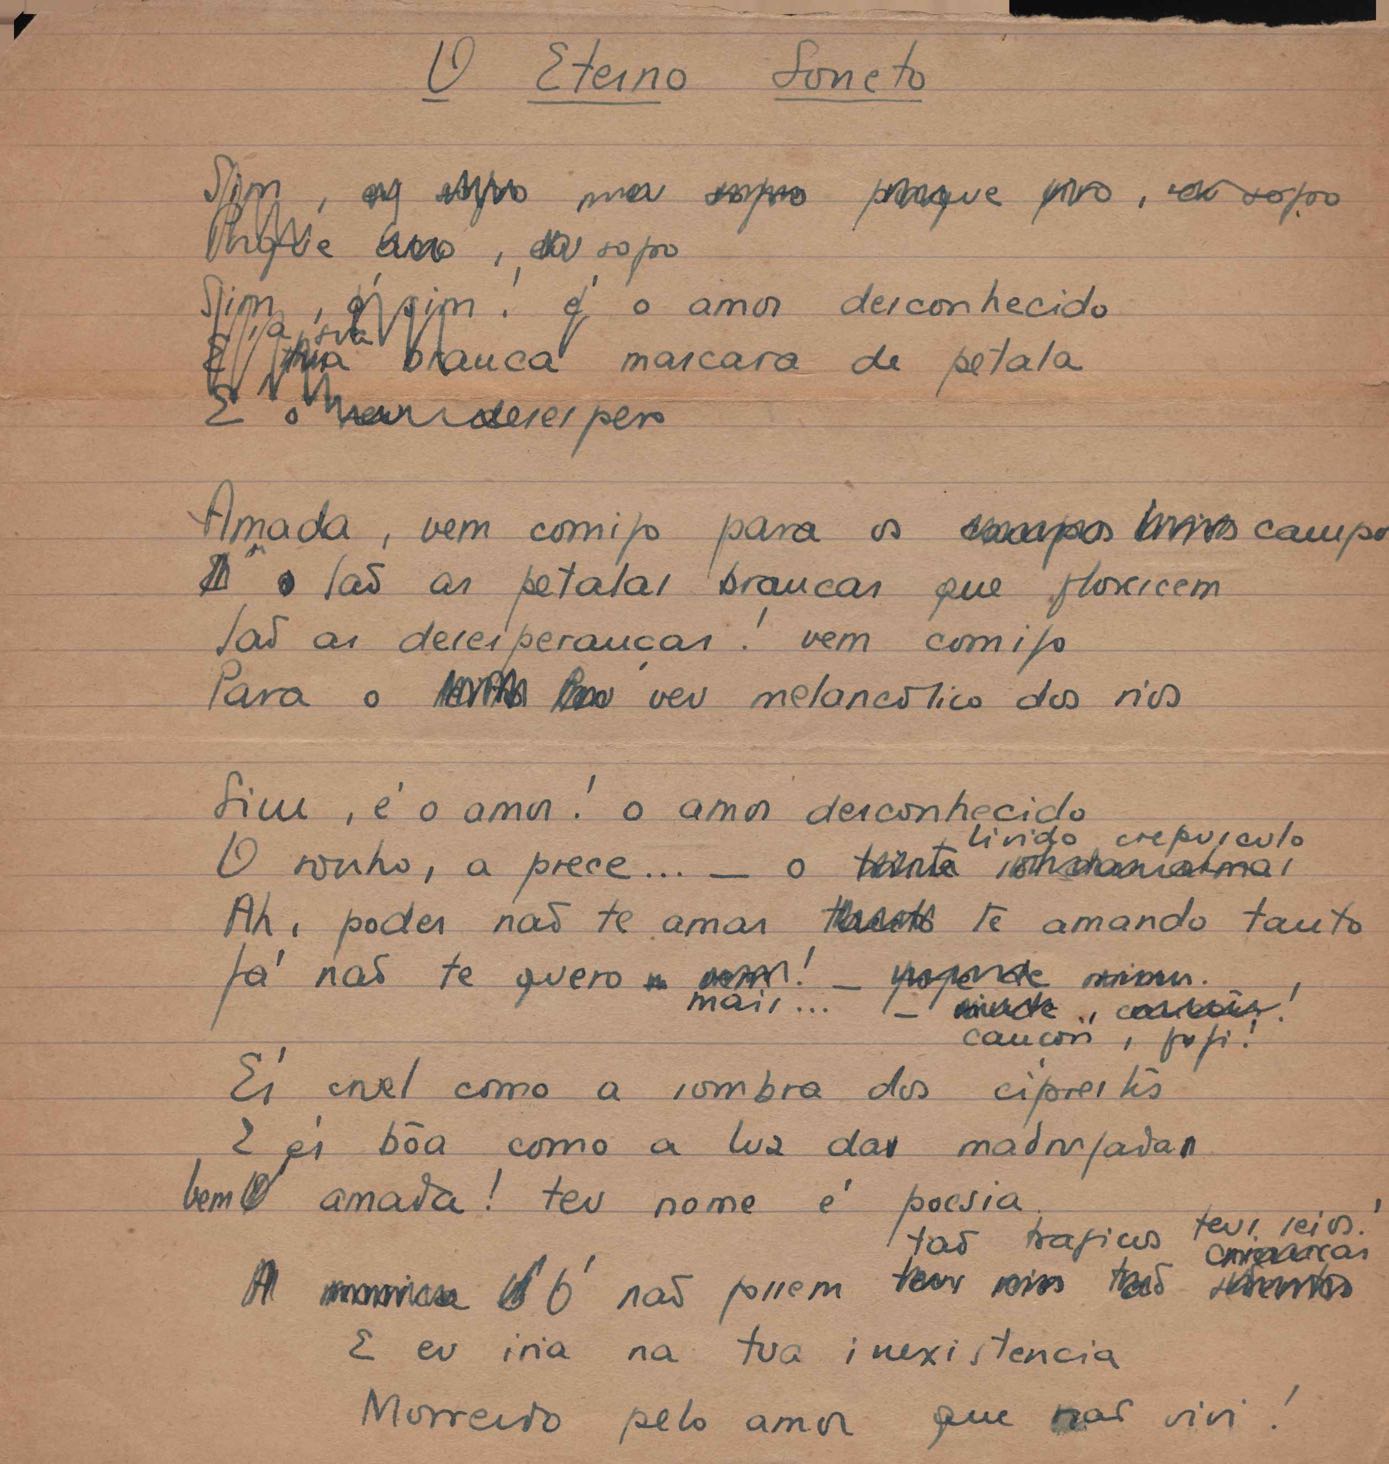 O Eterno Soneto
Sim, porque vivo, eu sofro
Porque amo, eu sofro
Sim, é sim! é o amor desconhecido
E tua sua branca mascara de petala
E o desespero
Amada, vem comigo para os campos
São as petalas brancas que florescem
São as desesperanças! vem comigo
Para o véu melancólico dos rios
Sim, é o amor! o amor desconhecido
livido crepusculo
O sonho, a prece... — o
Ah, poder não te amar te amando tanto
Já não te quero —
mais... —
canção, fugi!
És cruel como a sombra dos ciprestes
E és bôa como a luz das madrugadas
bem amada! teu nome é poesia
tão tragicos teus seios!
Ó não fossem
E eu iria na tua inexistencia
Morrendo pelo amor que não vivi!